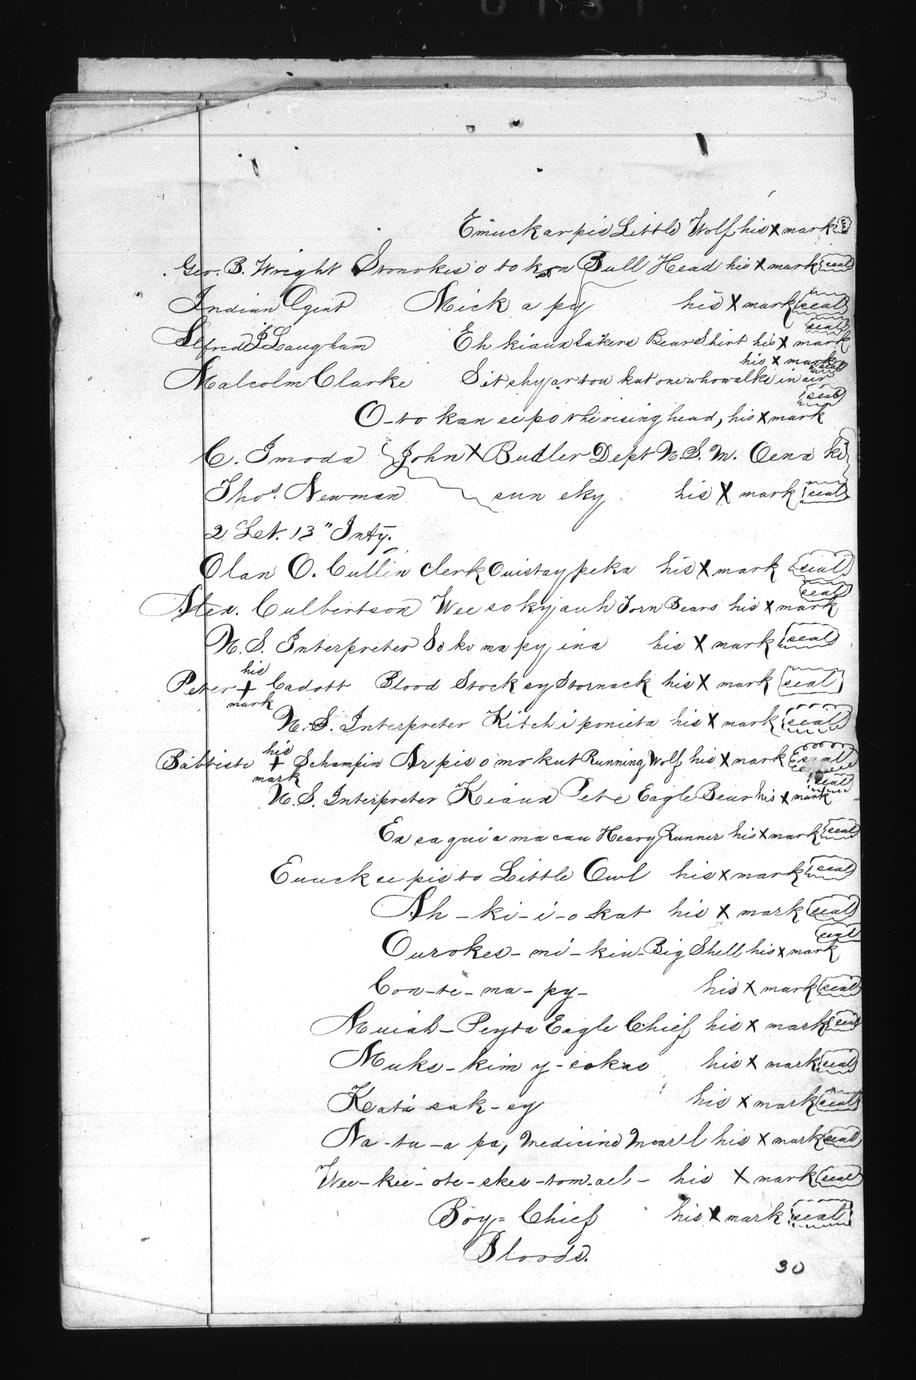 Emuckarpis Little Wolf his X mark
Geo. B. Wright Stonokes o to kon Bull Head his X mark seal
Indian Agent Mick a py his X mark seal
Alfred J Laughan Eh kiaua Lakers Bear Shirt his X mark seal
Malcolm Clarke Sit shy ar tou kat one who walks in air his X mark seal
O-to kan ei po the rising head, his X mark seal
C. Imoda John X Butler Dept U.S. M. Oena
Thos. Newman sun eky his X mark seal
2 Let. 13" Inty.
Olan O. Cullin clerk Ouistay peka his X mark seal
Alex. Culbertson Wee so ky auh Torn Bears his X mark seal
U.S. Interpreter So ko ma py ina his X mark seal
Peter his + mark Cadott Blood Stock ey Stornack his X mark seal
U.S. Interpreter Kitchi ponieta his X mark seal
Babtiste his + mark Schampin Ar pis o mo kut Running Wolf his X mark seal
U.S. Interpreter Kiaua Pete Eagle Bear his X mark seal
Ea sa qui a ma cau Heavy Runner his X mark seal
Emuck ee pis to Little Owl his X mark seal
Ah-ki-i-o kat his X mark seal
Ourokes-mi-kin-Big Shell his X mark seal
Con-te-na-py- his X mark seal
Muiah-Peyta Eagle Chief his X mark seal
Muks-kim y-sokas his X mark seal
Kata sak-ey his X mark seal
Na-tu-a pa, Medicine his X mark seal
Wee-kee-ote-skes-tom.ael- his X mark seal
Boy=Chief his X mark seal
Bloods.
30